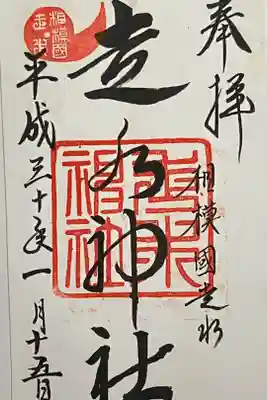 奉拝
相模國走水
走水神社
走水
神社
相模國
走水
平成三十年一月十五日